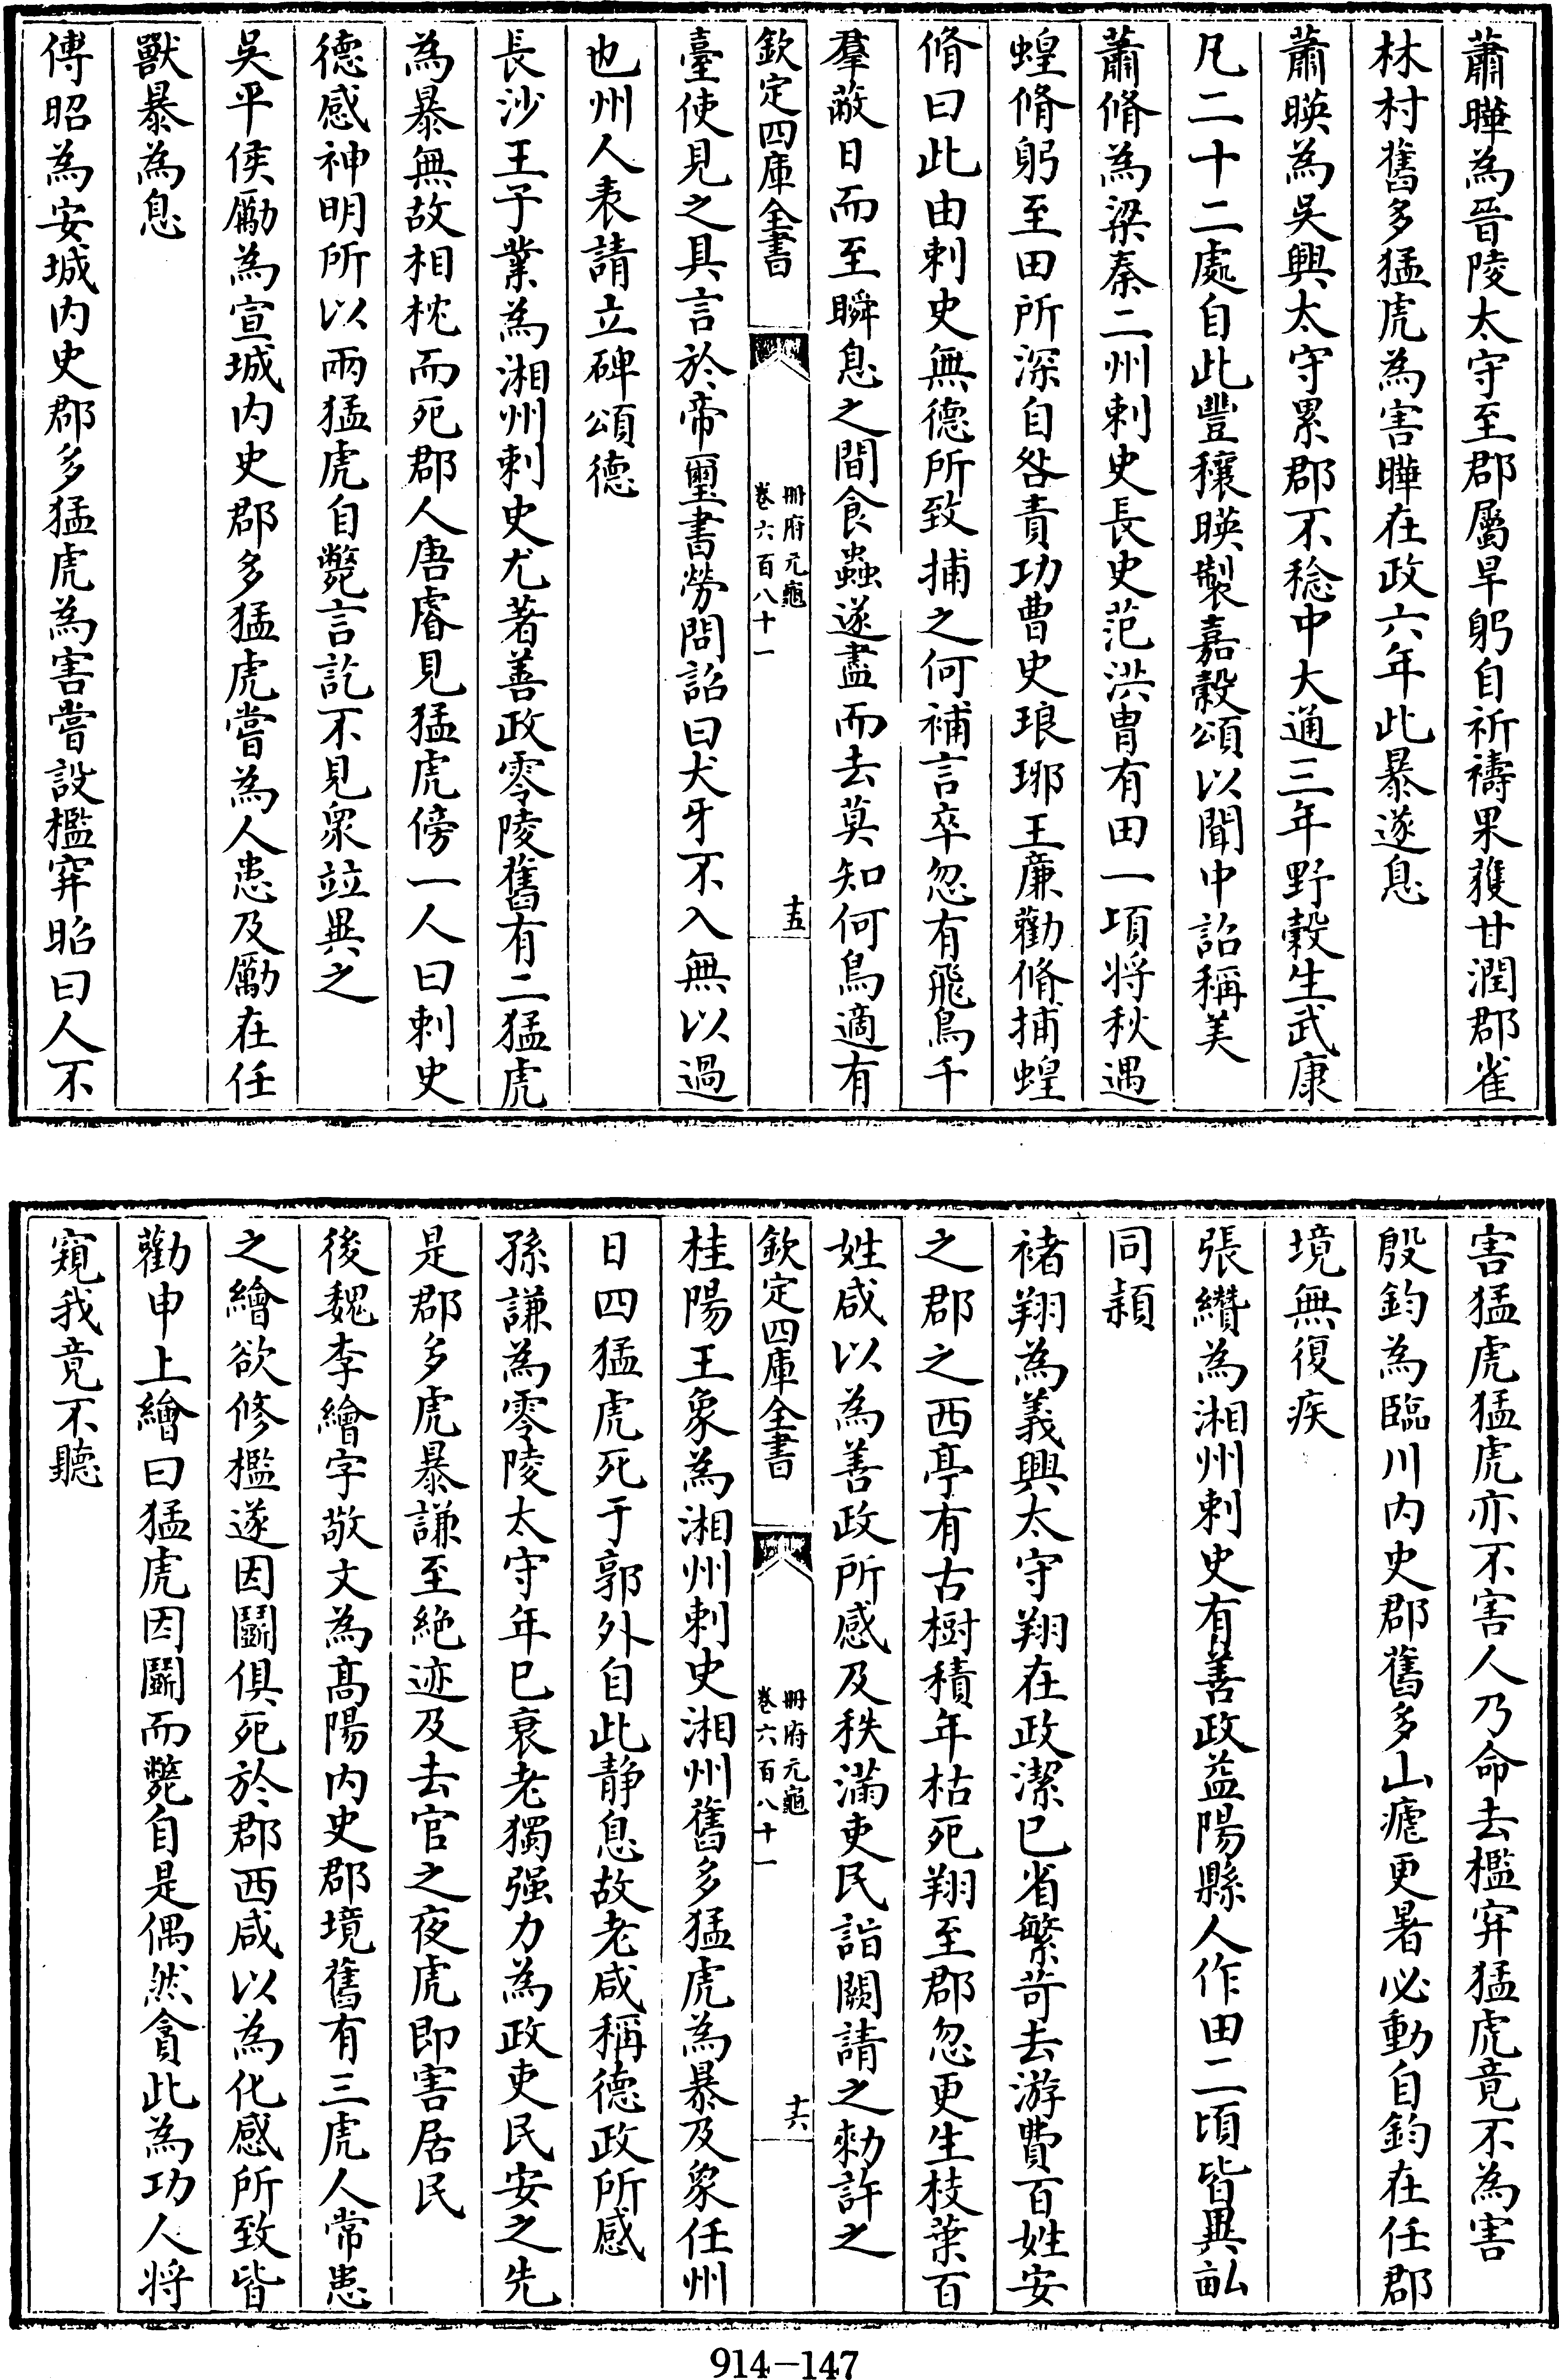 蕭曄為晉陵太守至郡屬旱躬自祈禱果獲甘潤郡雀
林村舊多猛虎為害曄在政六年此暴遂息
蕭暎為吳興太守累郡不稔中大通三年野穀生武康
凡二十二處自此豐穰暎製嘉穀頌以聞中詔稱美
蕭脩為梁秦二州刺史長史范洪胄有田一項將秋遇
蝗脩躬至田所深自咎責功曹史琅琊王廉勸脩捕蝗
脩曰此由刺史無德所致捕之何補言卒忽有飛鳥千
羣蔽日而至瞬息之間食蟲遂盡而去莫知何鳥適有
欽定四庫全書
冊府元龜
卷六百八十一
十五
臺使見之具言於帝璽書勞問詔曰犬牙不入無以過
也州人表請立碑頌德
長沙王子業為湘州刺史尤著善政零陵舊有二猛虎
為暴無故相枕而死郡人唐睿見猛虎傍一人曰刺史
德感神明所以兩猛虎自斃言訖不見衆竝異之
吳平侯勵為宣城内史郡多猛虎嘗為人患及勵在任
獸暴為息
傅昭為安城内史郡多猛虎為害嘗設檻穽昭曰人不
害猛虎猛虎亦不害人乃命去檻穽猛虎竟不為害
殷鈞為臨川内史郡舊多山瘧更暑必動自鈞在任郡
境無復疾
張纘為湘州刺史有善政益陽縣人作田二頃皆異畝
同穎
褚翔為義興太守翔在政潔已省繁苛去游費百姓安
之郡之西亭有古樹積年枯死翔至郡忽更生枝葉百
姓咸以為善政所感及秩滿吏民詣闕請之勑許之
欽定四庫全書
冊府元龜
卷六百八十一
十六
桂陽王象為湘州刺史湘州舊多猛虎為暴及象任州
日四猛虎死于郭外自此静息故老咸稱德政所感
孫謙為零陵太守年已衰老獨强力為政吏民安之先
是郡多虎暴謙至絶迹及去官之夜虎即害居民
後魏李繪字敬文為髙陽内史郡境舊有三虎人常患
之繪欲修檻遂因鬭俱死於郡西咸以為化感所致皆
勸申上繪曰猛虎因鬭而斃自是偶然貪此為功人将
窺我竟不聽
914-147